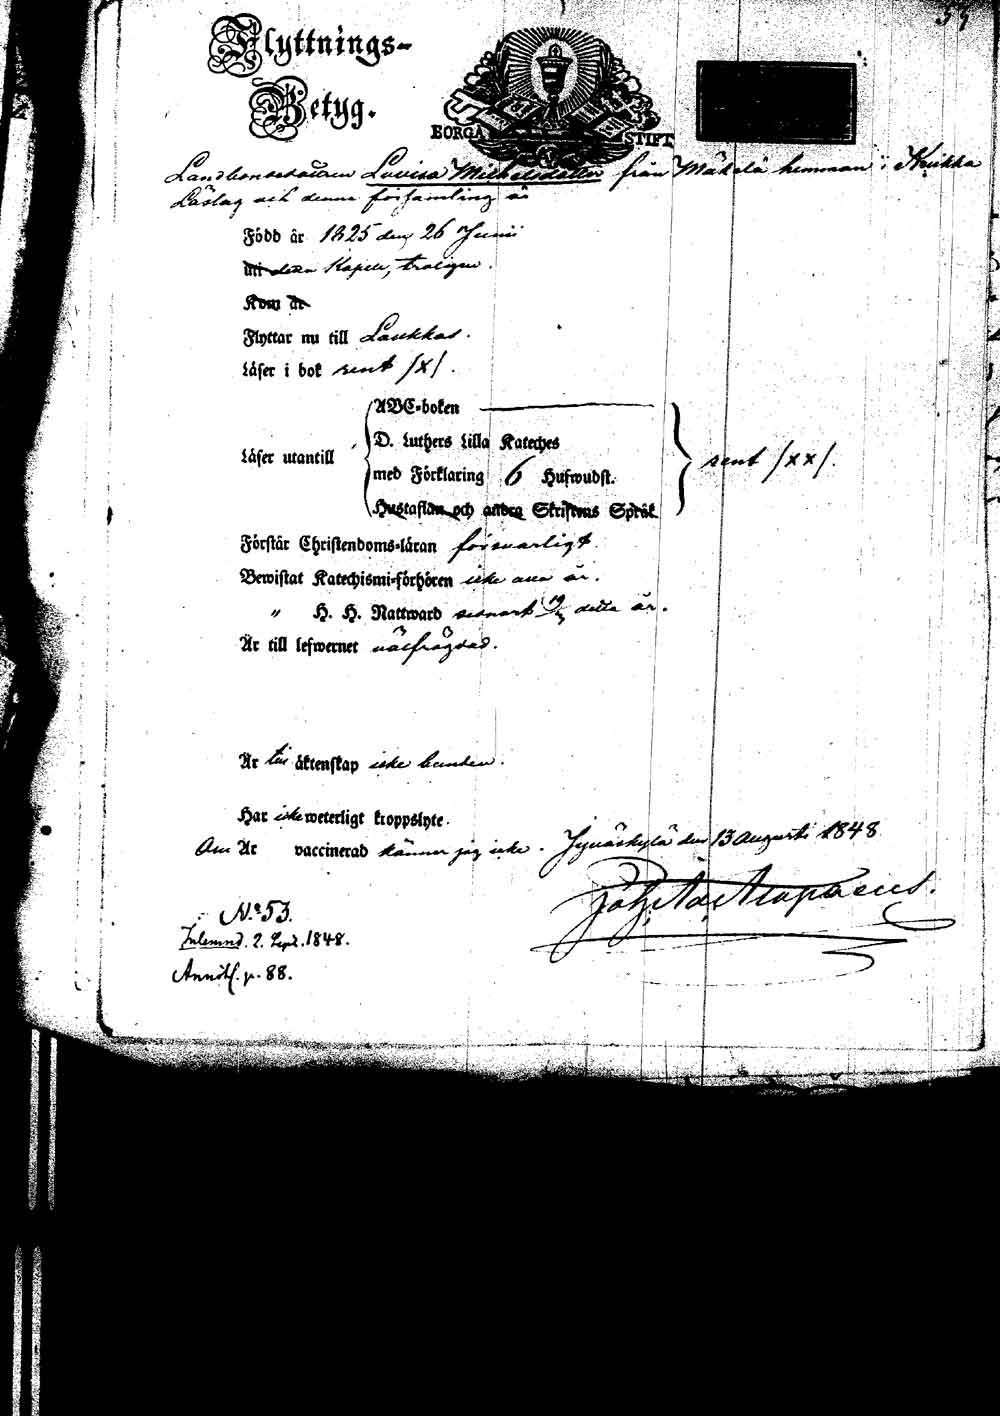 53
Flyttnings-
Betyg.
BORGÅ STIFT
Landbonsdottren Lovisa Michelsdotter från Mäkelä hemman i Keukka
Läslag och denne församling är
Född år 1825 den 26 Junii
uti detta Kapell, troligen.
Kom år
Flyttar nu till Laukkas.
Läser i bok rent /x/.
ABC-boken
D. Luthers Lilla Kateches
Läser utantill
med Förklaring 6 Hufwudst.
rent /xx/.
Hustaflan och andra Skriftens Språk
Förstår Christendoms-läran försvarligt.
Bewistat Katechismi-förhören icke alla år.
" H. H. Nattward senast detta år.
Är till lefwernet välfrägdad.
Är till äktenskap icke bunden.
Har icke weterligt kroppslyte.
Om Är vaccinerad känner jag icke. Jyväskylä den 13 Augusti 1848
No 53.
Inlemnd. 2. Sept. 1848.
Annot. p. 88.